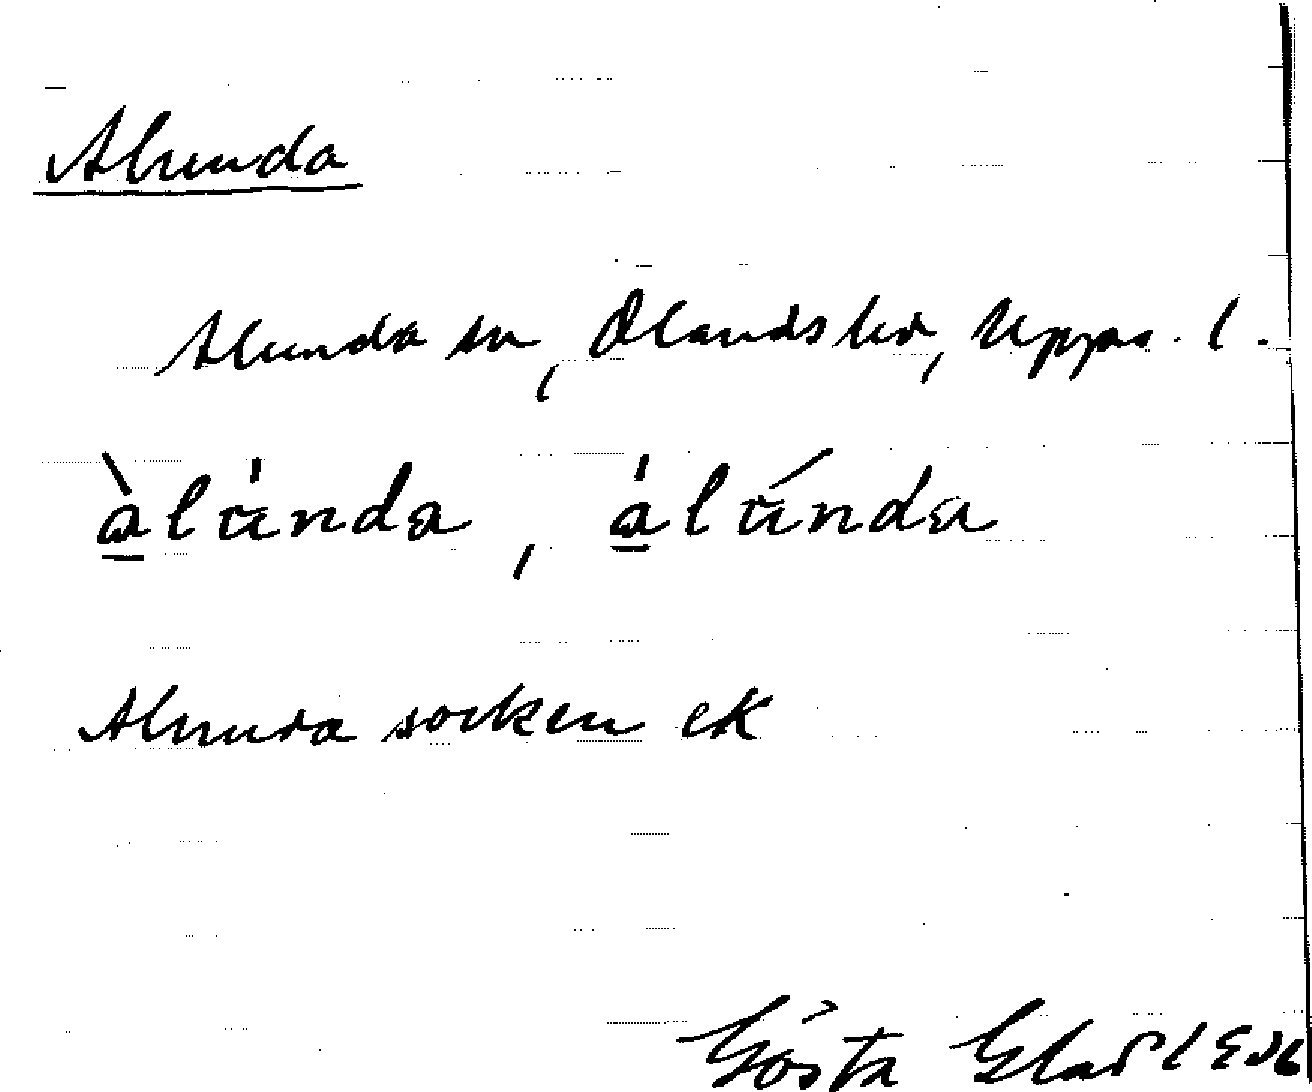 Alunda
Alunda sn, Ölands hd, Upps. l.
àlu̇nda, álúnda
Alunda socken ek
Gösta